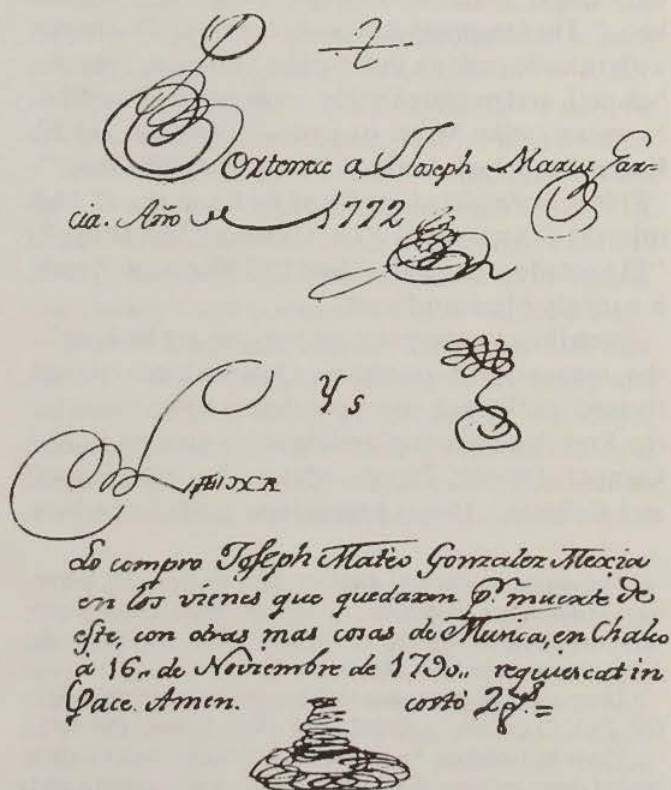 Pertenece a Joseph Maria Gar=
cia. Año de 1772
Y s
Lo compro Joseph Mateo Gonzalez Mexia
en los vienes que quedaron pr. muerte de
este, con otras mas cosas de Musica, en Chalco
à 16,, de Noviembre de 1790,, requiescat in
Pace. Amen. costò 2 ps.=